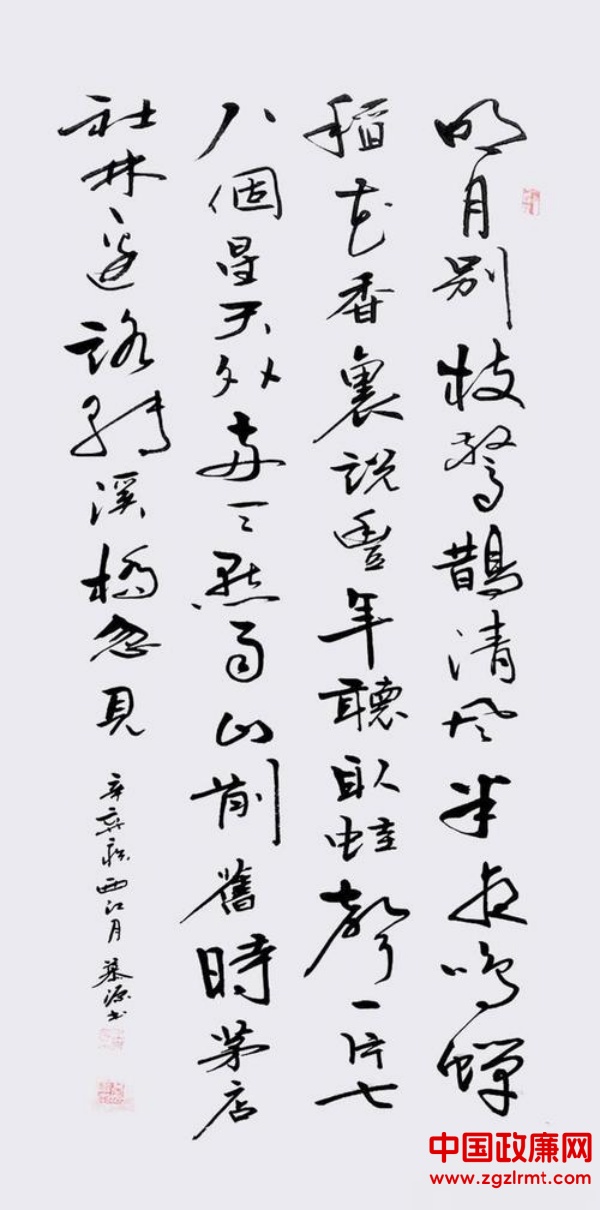 明月别枝驚鵲清風半夜鳴蟬
稻花香裏説豐年聽取蛙聲一片七
八個星天外兩三點雨山前舊時茅店
社林邊路轉溪橋忽見
辛棄疾西江月 慕源书
中国政廉网
www.zgzlrmt.com